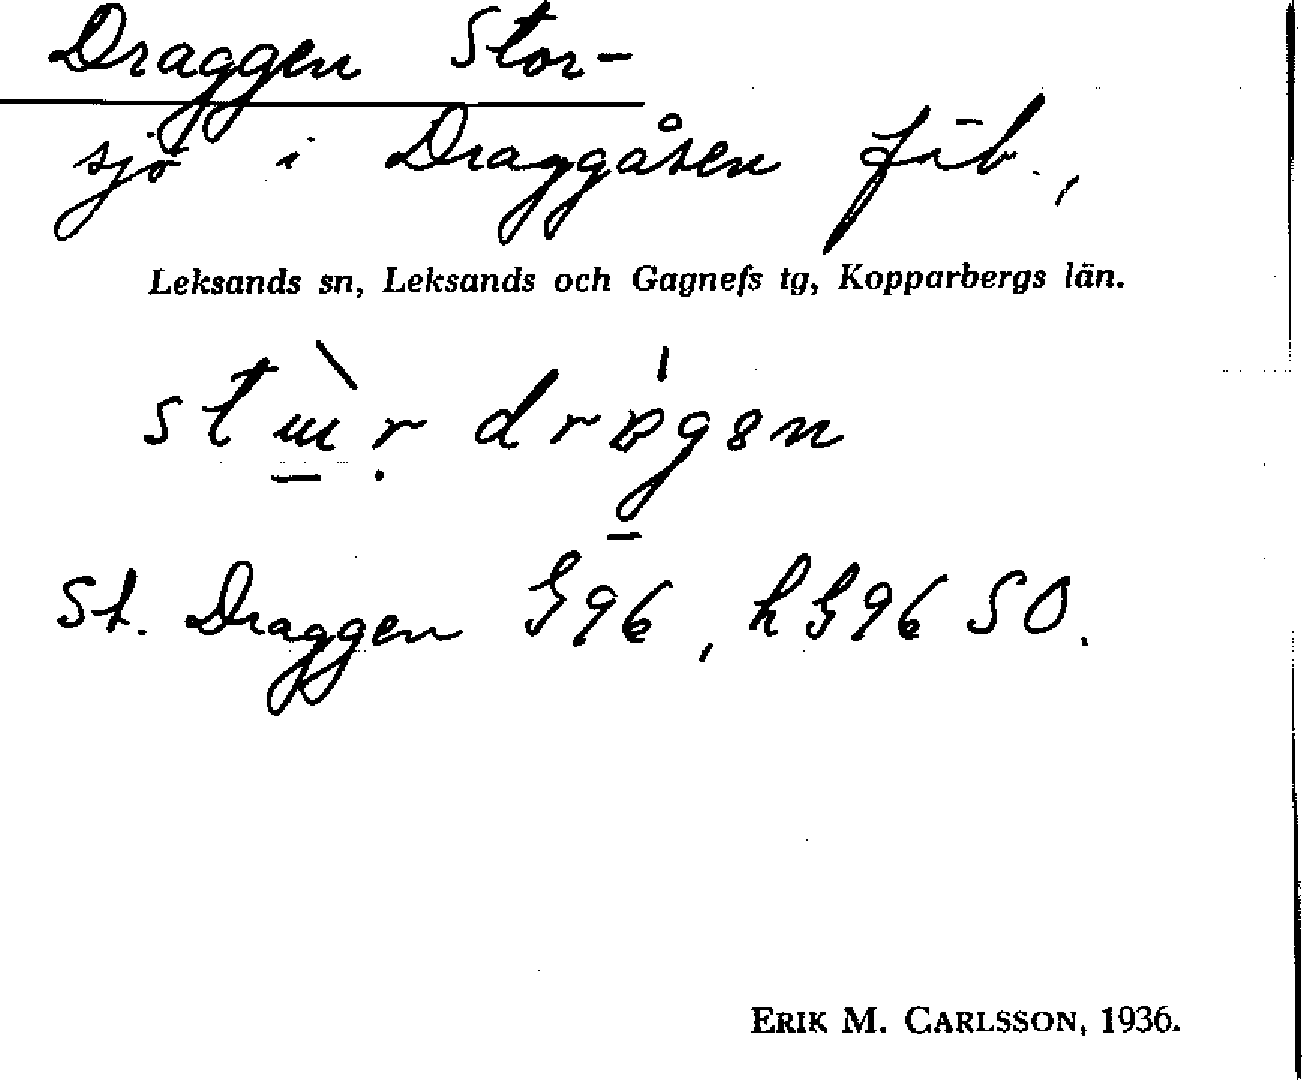 Draggen Stor-
sjö i Draggåsen fäb.,
Leksands sn, Leksands och Gagnefs tg, Kopparbergs län.
St. Draggen G96, h G96 SO.
ERIK M. CARLSSON, 1936.